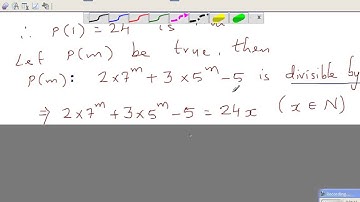 ∴ P(1) = 24 is
Let P(m) be true, then
P(m): 2×7^m + 3×5^m − 5 is divisible by
⇒ 2×7^m + 3×5^m − 5 = 24x (x ∈ N)
Recording...